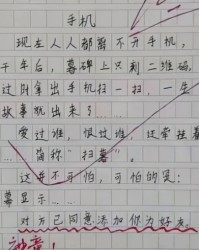 手机
现在人人都离不开手机，
千年后，墓碑上只剩二维码，
过别拿出手机扫一扫，一生
故事就出来了……
爱过谁，恨过谁，还牵挂着
…… 简称“扫墓”。
这并不可怕，可怕的是：
屏显示……
对方已同意添加你为好友